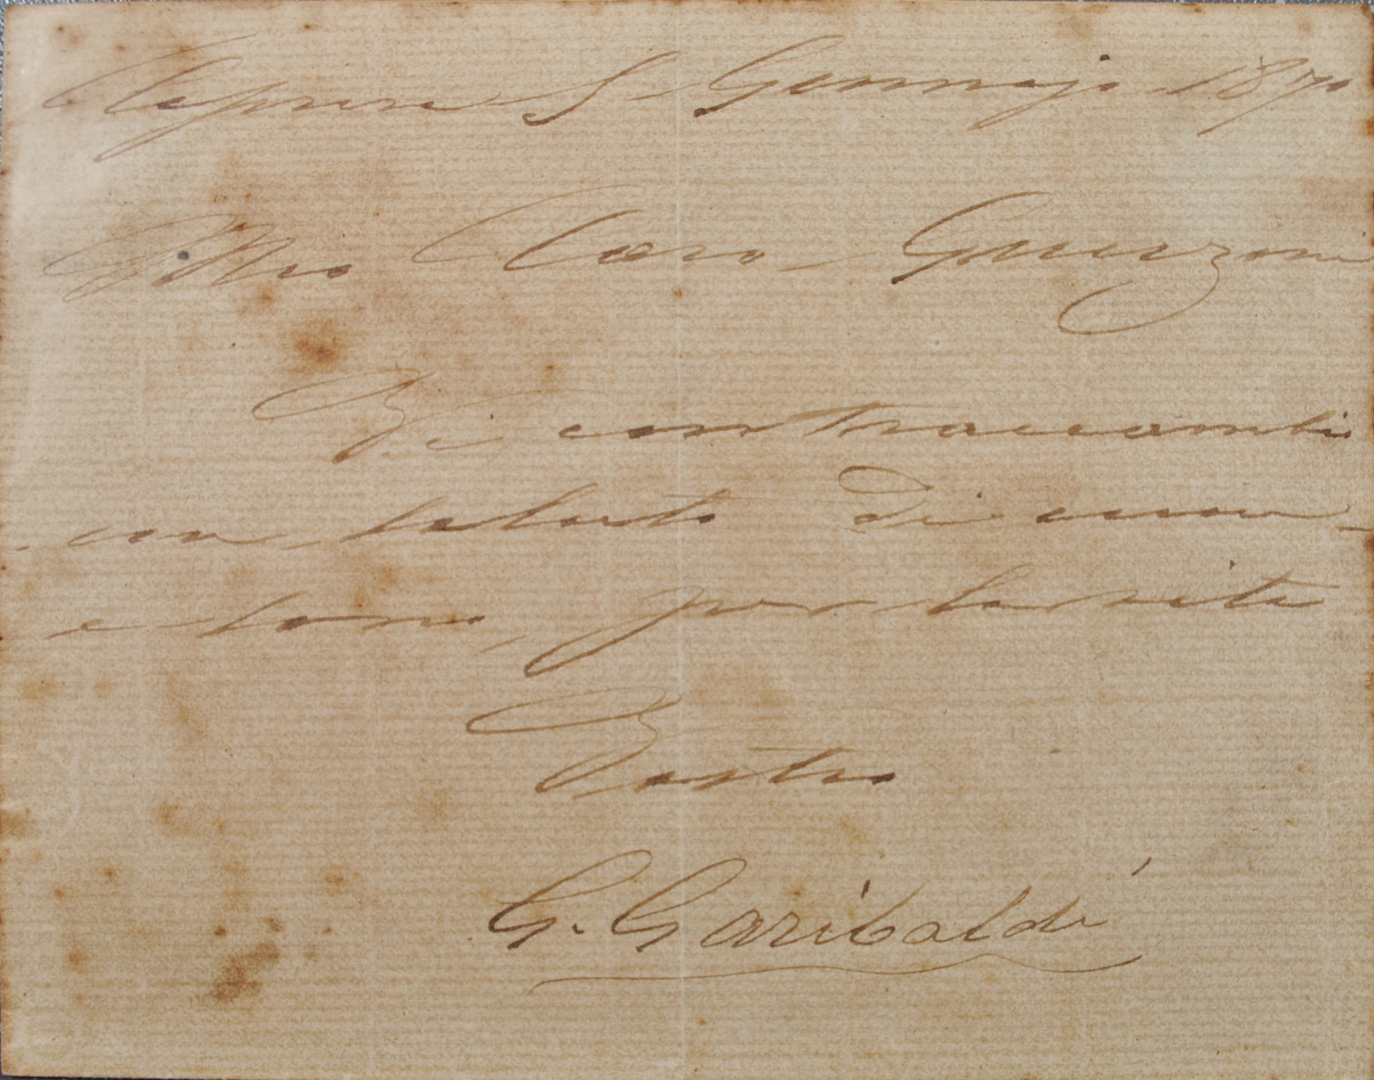 Caprera 5 Gennajo 1870
Mio Caro Guerzoni
Vi contraccambio
un saluto di cuore
e sono, per la vita
Vostro
G. Garibaldi